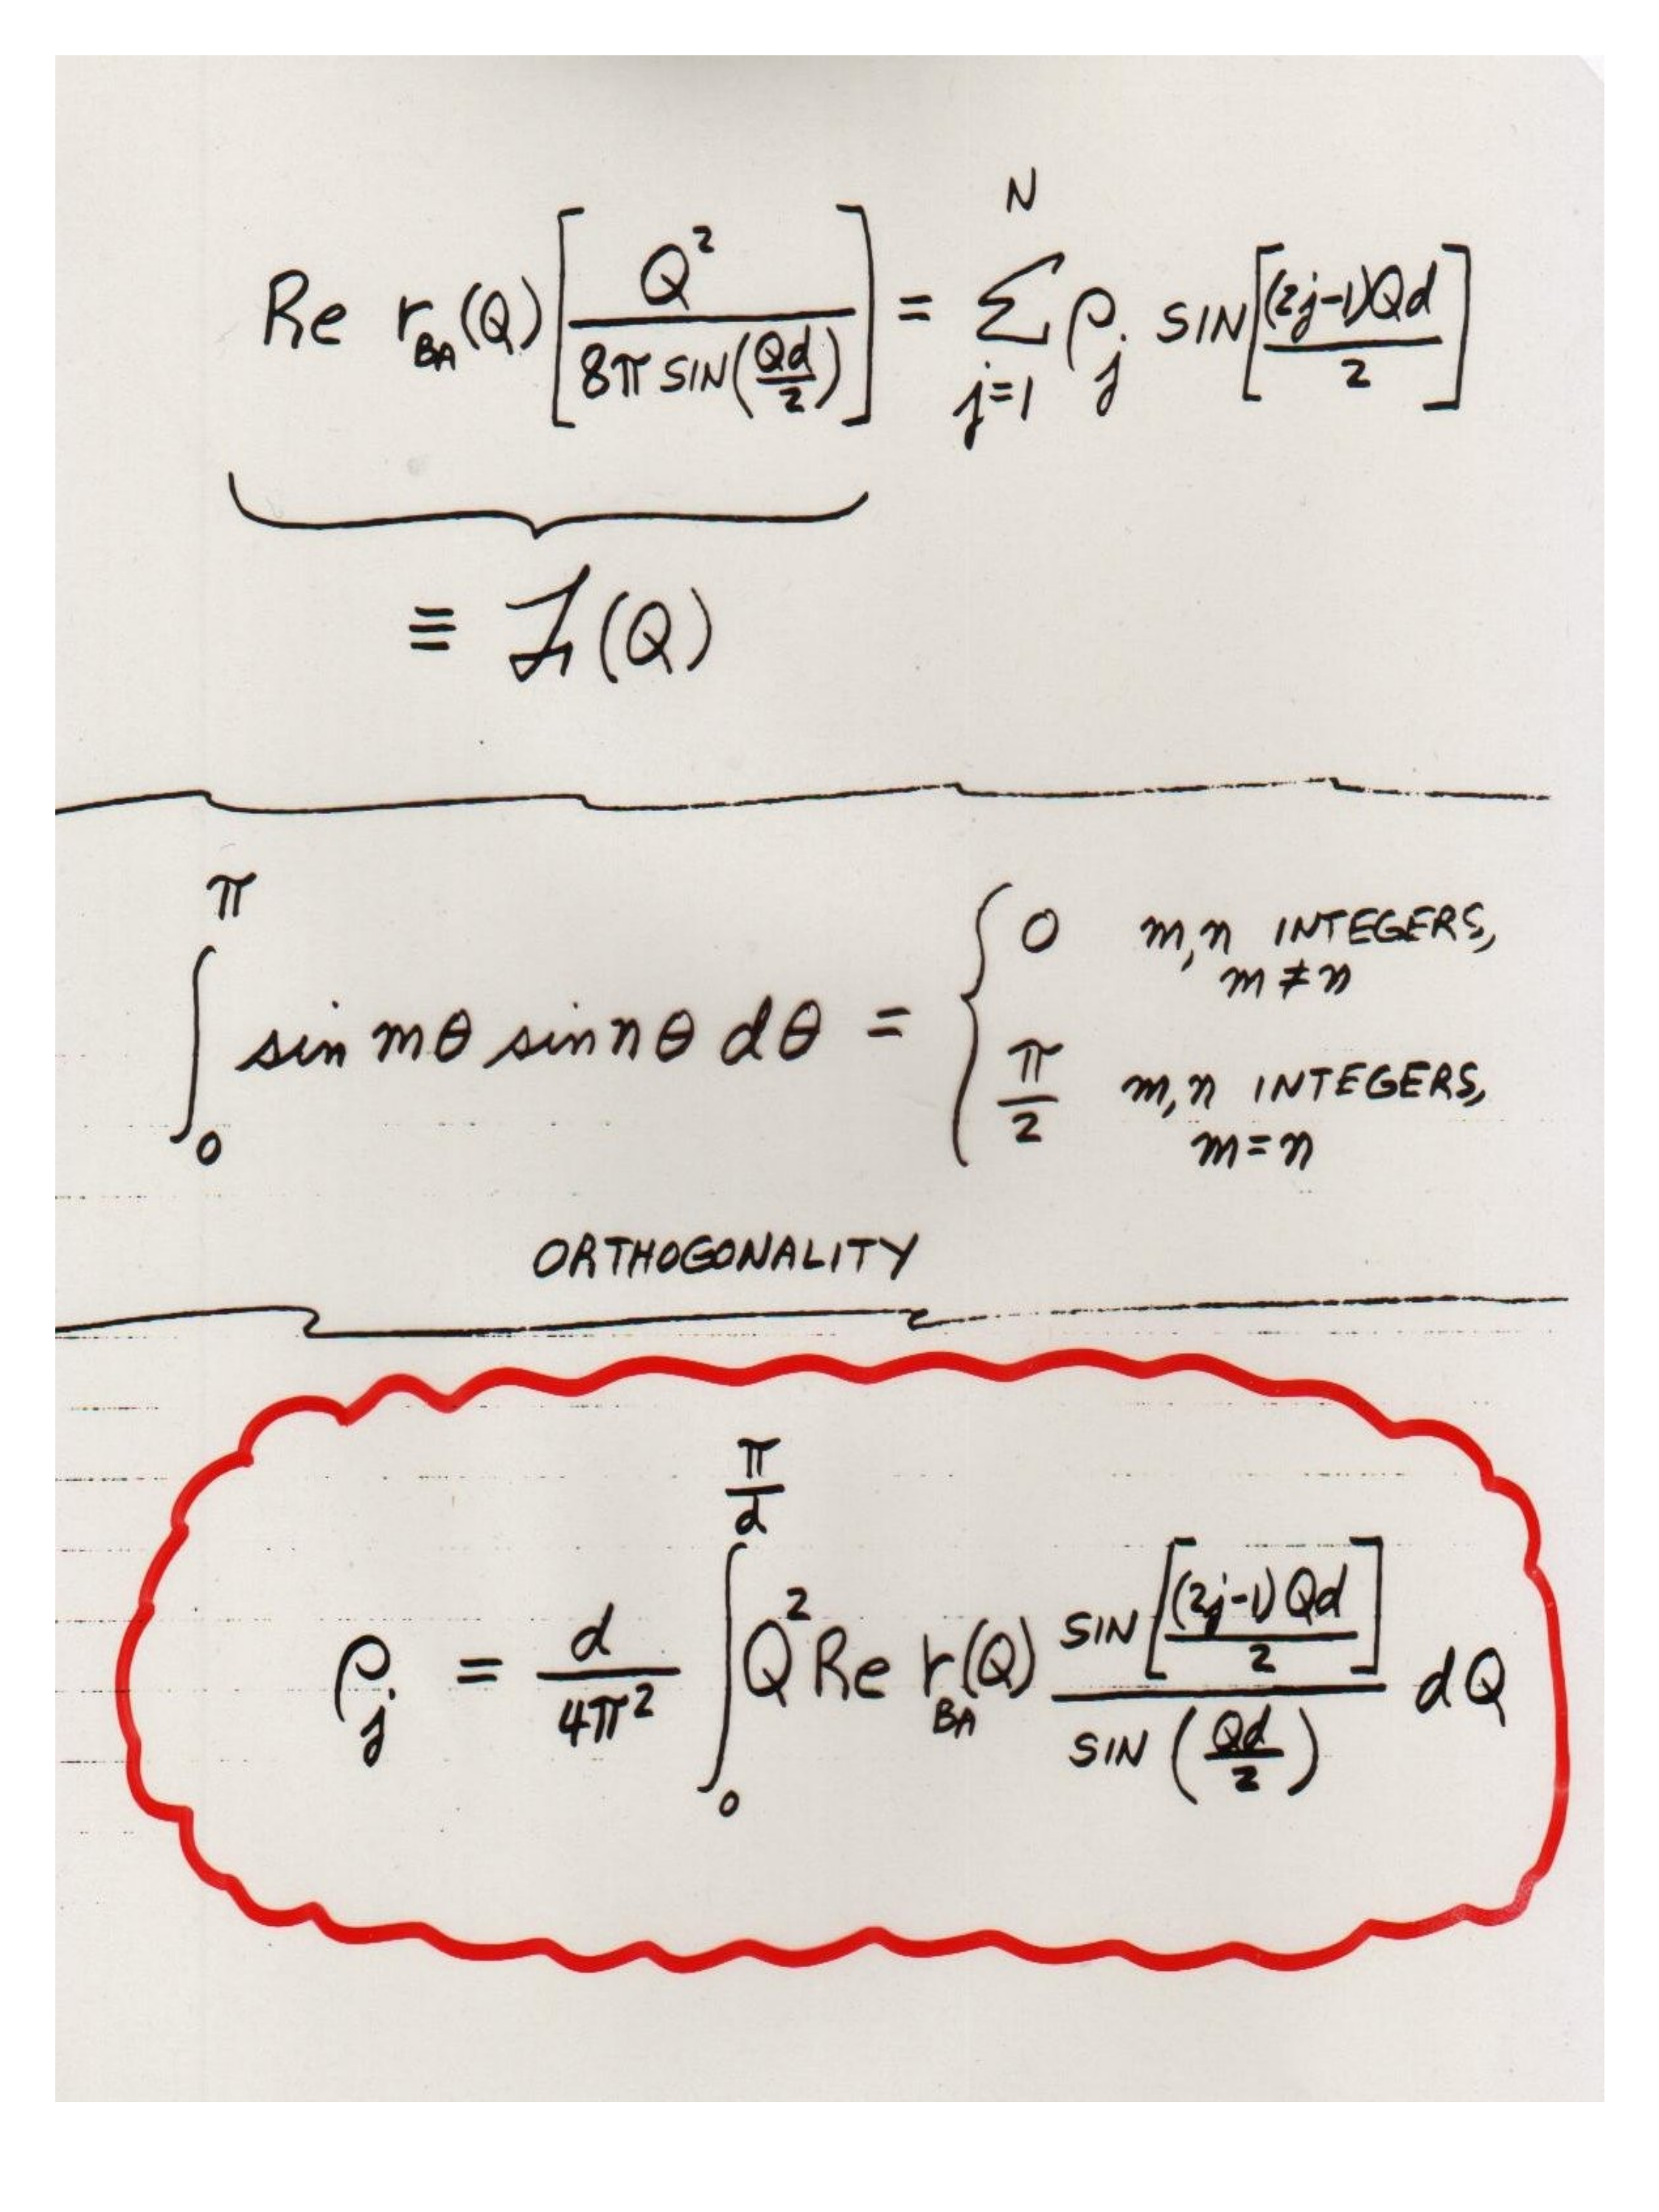 Re r_BA(Q) [Q² / 8π SIN(Qd/2)] = Σ_{j=1}^{N} ρ_j SIN[(2j-1)Qd / 2]
≡ (Q)
∫_0^π sin mθ sin nθ dθ = { 0 m,n INTEGERS, m ≠ n
π/2 m,n INTEGERS, m = n
ORTHOGONALITY
ρ_j = d/4π² ∫_0^{π/d} Q² Re r_BA(Q) SIN[(2j-1)Qd / 2] / SIN(Qd/2) dQ